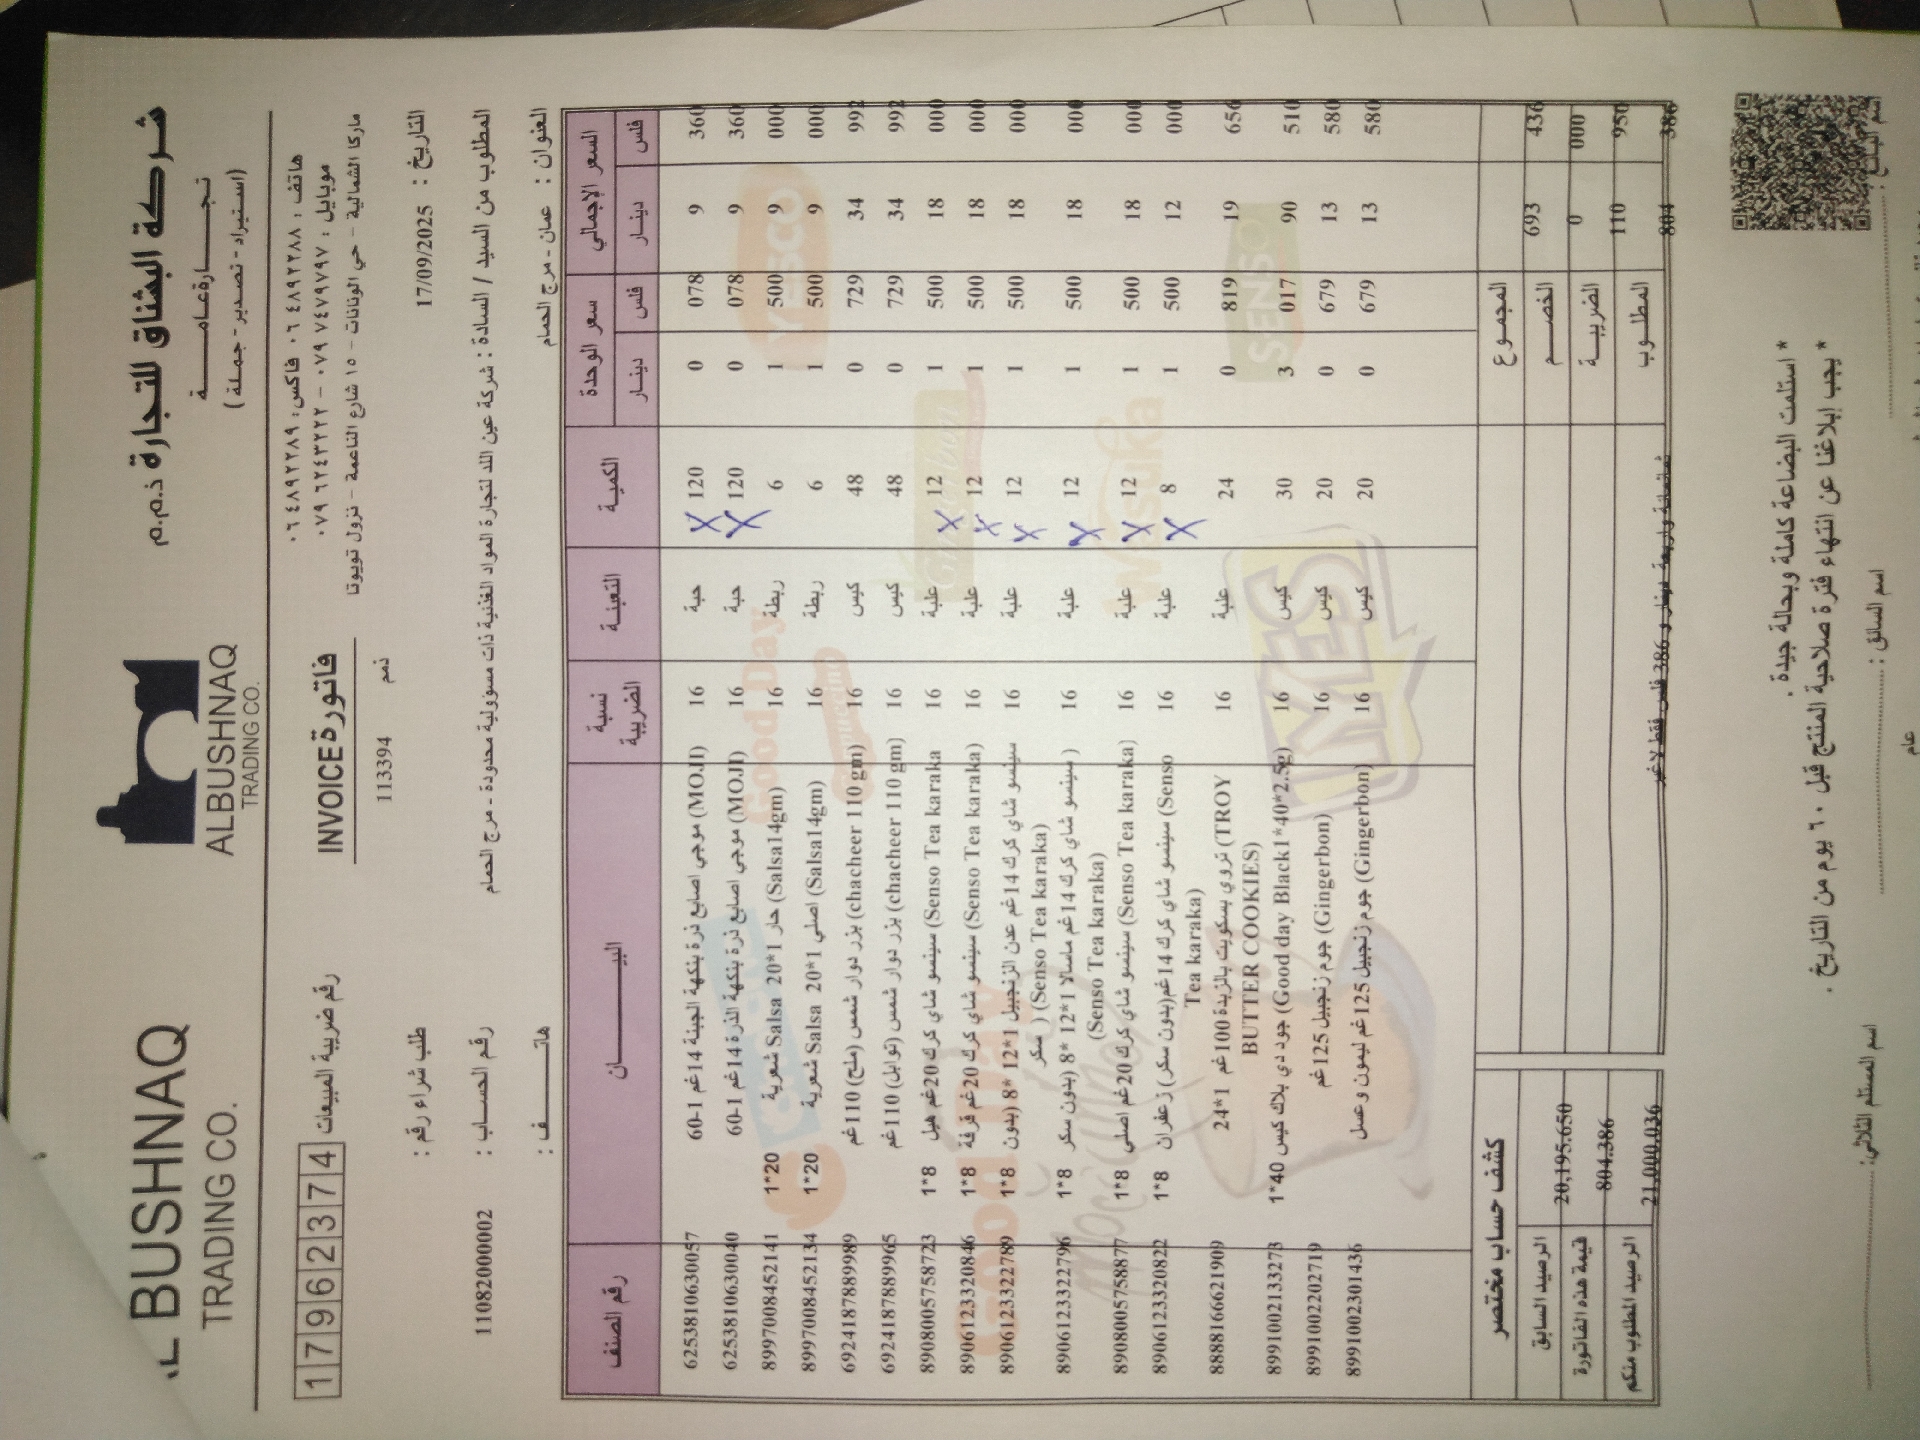 شركة البشناق للتجارة ذ.م.م
تجارة عامة
(استيراد - تصدير - جملة)
ALBUSHNAQ
TRADING CO.
AL BUSHNAQ
TRADING CO.
هاتف : ٠٦ ٤٨٩٢٢٨٨ فاكس: ٠٦ ٤٨٩٢٢٨٩
موبايل : ٠٧٩ ٧٤٧٩٧٩٧ - ٠٧٩ ٦٢٤٣٢٢٢
ماركا الشمالية - حي الونانات - ١٥ شارع الناعمة - نزول تويوتا
فاتورة INVOICE
رقم ضريبة المبيعات 17962374
ذمم 113394
التاريخ : 17/09/2025
طلب شراء رقم :
المطلوب من السيد / السادة : شركة عين اللد لتجارة المواد الغذنية ذات مسؤولية محدودة - مرج الحمام
رقم الحساب : 11082000002
العنوان : عمان - مرج الحمام
هاتف :
رقم الصنف البيان نسبة الضريبة التعبئة الكمية سعر الوحدة السعر الإجمالي
دينار فلس دينار فلس
6253810630057 موجي اصابع ذرة بنكهة الجبنة 14غم 1-60 (MOJI) 16 حبة 120 0 078 9 360
6253810630040 موجي اصابع ذرة بنكهة الذرة 14غم 1-60 (MOJI) 16 حبة 120 0 078 9 360
8997008452141 1*20 شعرية Salsa 20*1 حار (Salsa14gm) 16 ربطة 6 1 500 9 000
8997008452134 1*20 شعرية Salsa 20*1 اصلي (Salsa14gm) 16 ربطة 6 1 500 9 000
6924187889989 بزر دوار شمس (ملح) 110غم (chacheer 110 gm) 16 كيس 48 0 729 34 992
6924187889965 بزر دوار شمس (توابل) 110غم (chacheer 110 gm) 16 كيس 48 0 729 34 992
8908005758723 1*8 سينسو شاي كرك 20غم هيل (Senso Tea karaka 16 علبة 12 1 500 18 000
8906123320846 1*8 سينسو شاي كرك 20غم قرفة (Senso Tea karaka) 16 علبة 12 1 500 18 000
8906123322789 1*8 سينسو شاي كرك 14غم عدن الزنجبيل 1*12 *8 (بدون سكر ) (Senso Tea karaka) 16 علبة 12 1 500 18 000
8906123322796 1*8 سينسو شاي كرك 14غم ماسالا 1*12 *8 (بدون سكر ) (Senso Tea karaka) 16 علبة 12 1 500 18 000
8908005758877 1*8 سينسو شاي كرك 20غم اصلي (Senso Tea karaka) 16 علبة 12 1 500 18 000
8906123320822 1*8 سينسو شاي كرك 14غم(بدون سكر) زعفران (Senso Tea karaka) 16 علبة 8 1 500 12 000
8888166621909 تروي بسكويت بالزبدة 100غم 1*24 (TROY BUTTER COOKIES) 16 علبة 24 0 819 19 656
8991002133273 1*40 جود دي بلاك كيس (Good day Black1*40*2.5g) 16 كيس 30 3 017 90 510
8991002202719 جوم زنجبيل 125غم (Gingerbon) 16 كيس 20 0 679 13 580
8991002301436 جوم زنجبيل 125غم ليمون وعسل (Gingerbon) 16 كيس 20 0 679 13 580
المجموع 693 436
الخصم 0 000
الضريبة 110 950
المطلوب 804 386
ثمانمائة واربعة دينار و 386 فلس فقط لاغير
كشف حساب مختصر
الرصيد السابق 20,195.650
قيمة هذه الفاتورة 804.386
الرصيد المطلوب منكم 21,000.036
* استلمت البضاعة كاملة وبحالة جيدة .
* يجب إبلاغنا عن انتهاء فترة صلاحية المنتج قبل ٦٠ يوم من التاريخ .
اسم المستلم الثلاثي:
اسم السائق :